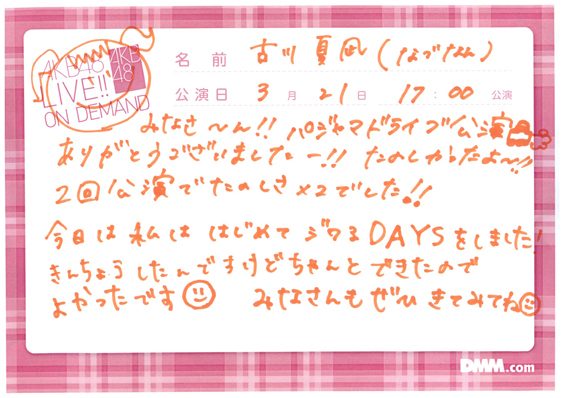 AKB48 LIVE!! ON DEMAND
AKB48
名前 古川夏凪(なづなん)
公演日 3月21日 17:00 公演
みなさ〜ん!! パジャマドライブ公演
ありがとうございましたー!! たのしかったよ〜!!
2回公演でたのしさ×2でした!!
今日は私ははじめてジワるDAYSをしました!
きんちょうしたんですけどちゃんとできたので
よかったです みなさんもぜひきてみてね
DMM.com